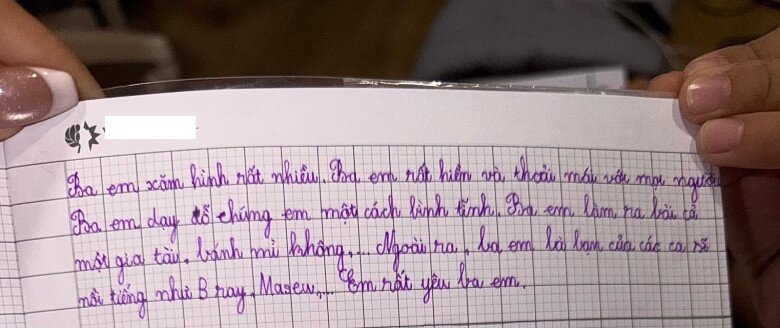 Ba em xăm hình rất nhiều. Ba em rất hiền và thoải mái với mọi người
Ba em dạy dỗ chúng em một cách bình tĩnh. Ba em làm ra bài cả
một gia tài, bánh mì không,... Ngoài ra, ba em là bạn của các ca sĩ
nổi tiếng như B ray, Masew,... Em rất yêu ba em.